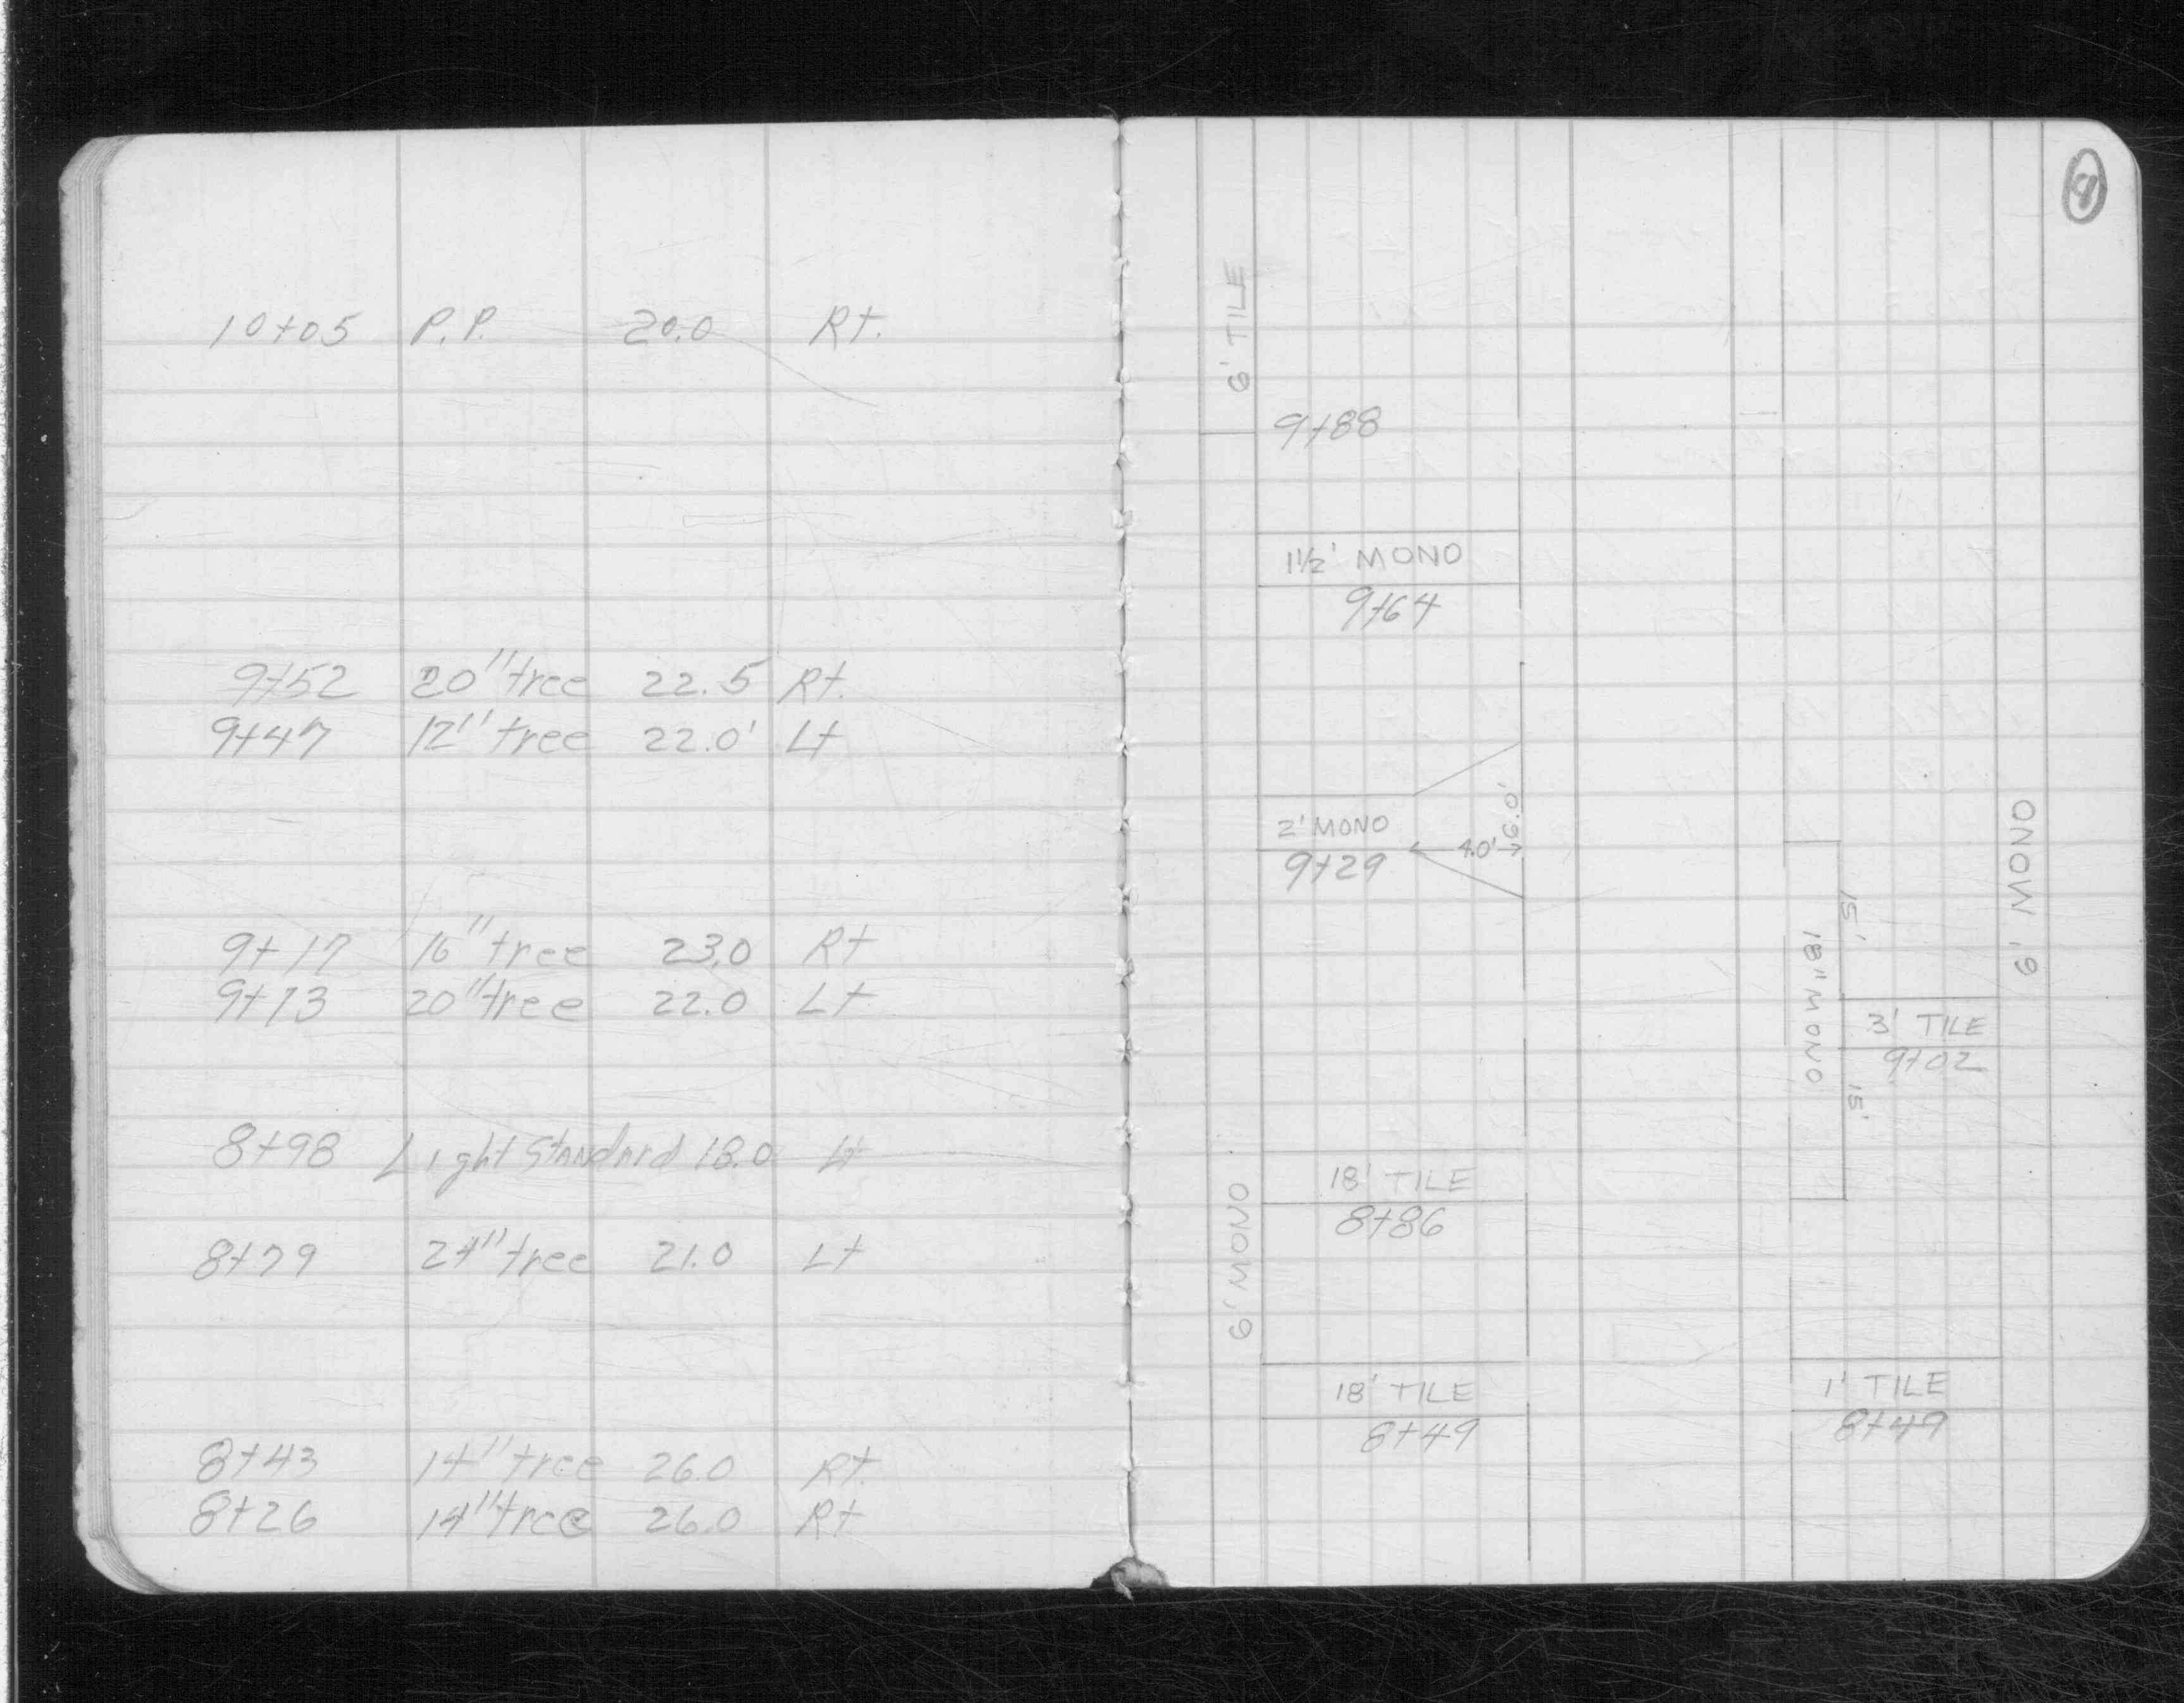 10+05 P.P. 20.0 Rt.
9+52 20" tree 22.5 Rt.
9+47 12" tree 22.0' Lt
9+17 16" tree 23.0 Rt
9+13 20" tree 22.0 Lt
8+98 Light Standard 18.0 Lt
8+79 24" tree 21.0 Lt
8+43 14" tree 26.0 Rt.
8+26 14" tree 26.0 Rt
6' TILE
9+88
1½' MONO
9+64
2' MONO
9+29
4.0'
6.0'
6' MONO
15'
18" MONO
3' TILE
9+02
15'
18' TILE
8+86
6' MONO
18' TILE
8+49
1' TILE
8+49